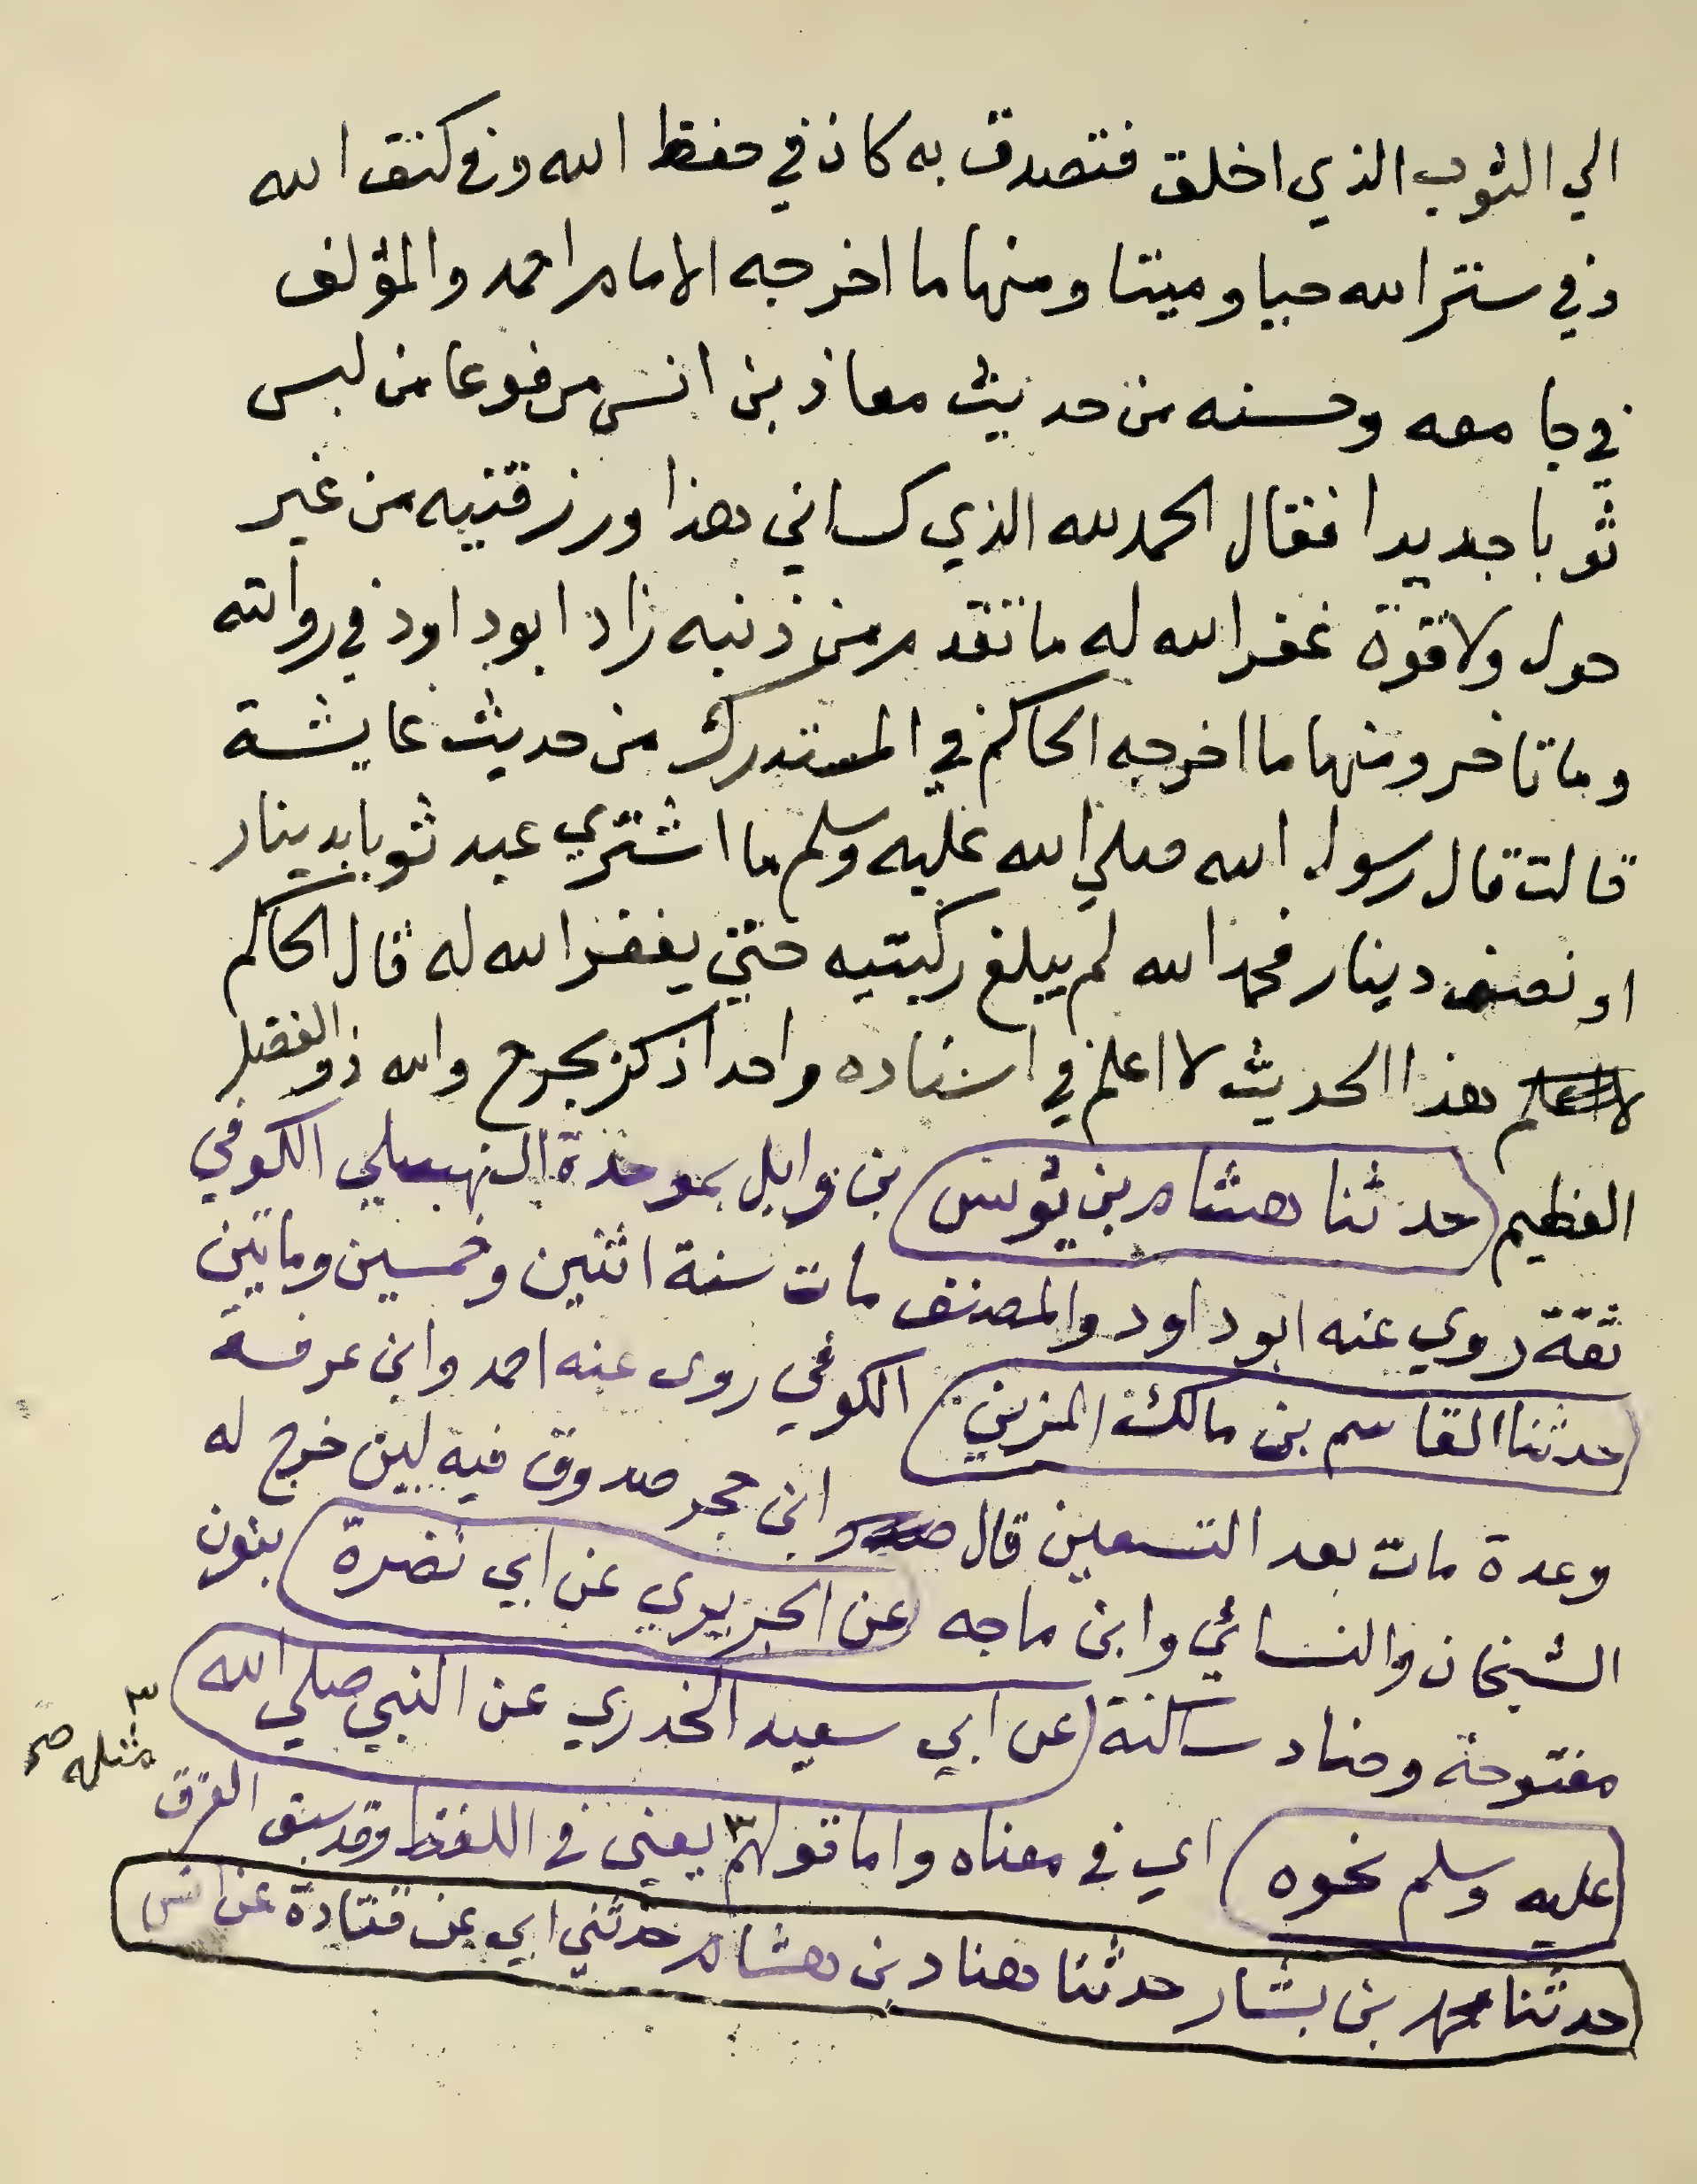 الي الثوب الذي اخلق فتصدق به كان في حفظ الله وفي كنف الله
وفي ستر الله حيا وميتا ومنها ما اخرجه الامام احمد والمؤلف
في جامعه وحسنه من حديث معاذ بن انس مرفوعا من لبس
ثوبا جديدا فقال الحمد لله الذي كساني هذا ورزقنيه من غير
حول ولا قوة غفر الله له ما تقدم من ذنبه زاد ابو داود في روايته
وما تاخر ومنها ما اخرجه الحاكم في المستدرك من حديث عايشة
قالت قال رسول الله صلي الله عليه وسلم ما اشتري عبد ثوبا بدينار
او نصف دينار فحمد الله لم يبلغ ركبتيه حتي يغفر الله له قال الحاكم
هذا الحديث لا اعلم في اسناده واحدا ذكر بجرح والله ذو الفضل
العظيم (حدثنا هشام بن يونس) بن وابل بموحدة النهشلي الكوفي
ثقة روي عنه ابو داود والمصنف مات سنة اثنين وخمسين وماتين
(حدثنا القاسم بن مالك المزني) الكوفي روى عنه احمد وابن عرفة
وعدة مات بعد التسعين قال ابن حجر صدوق فيه لين خرج له
الشيخان والنسائي وابن ماجه (عن الجريري عن ابي نضرة) بنون
مفتوحة وضاد ساكنة (عن ابي سعيد الخدري عن النبي صلي الله
عليه وسلم نحوه) اي في معناه واما قولهم ٣ يعني في اللفظ وقد سبق الفرق
٣ مثله صح
حدثنا محمد بن بشار حدثنا هناد بن هشام حدثني ابي عن قتادة عن انس